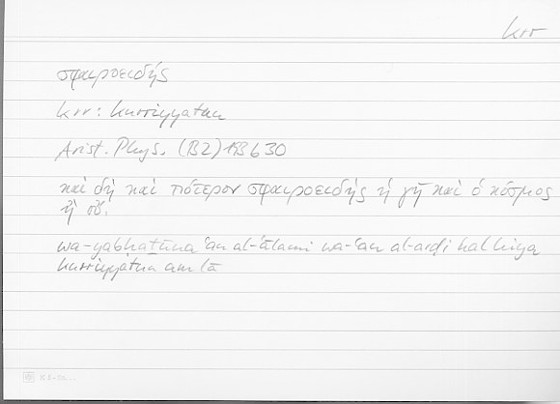 krr
σφαιροειδής
krr: kurriyyatun
Arist. Phys. (B2) 193b30
καὶ δὴ καὶ πότερον σφαιροειδὴς ἡ γῆ καὶ ὁ κόσμος
ἢ οὔ.
wa-yabḥaṯūna ʿan al-ʿālami wa-ʿan al-arḍi hal humā
kurriyyatun am lā